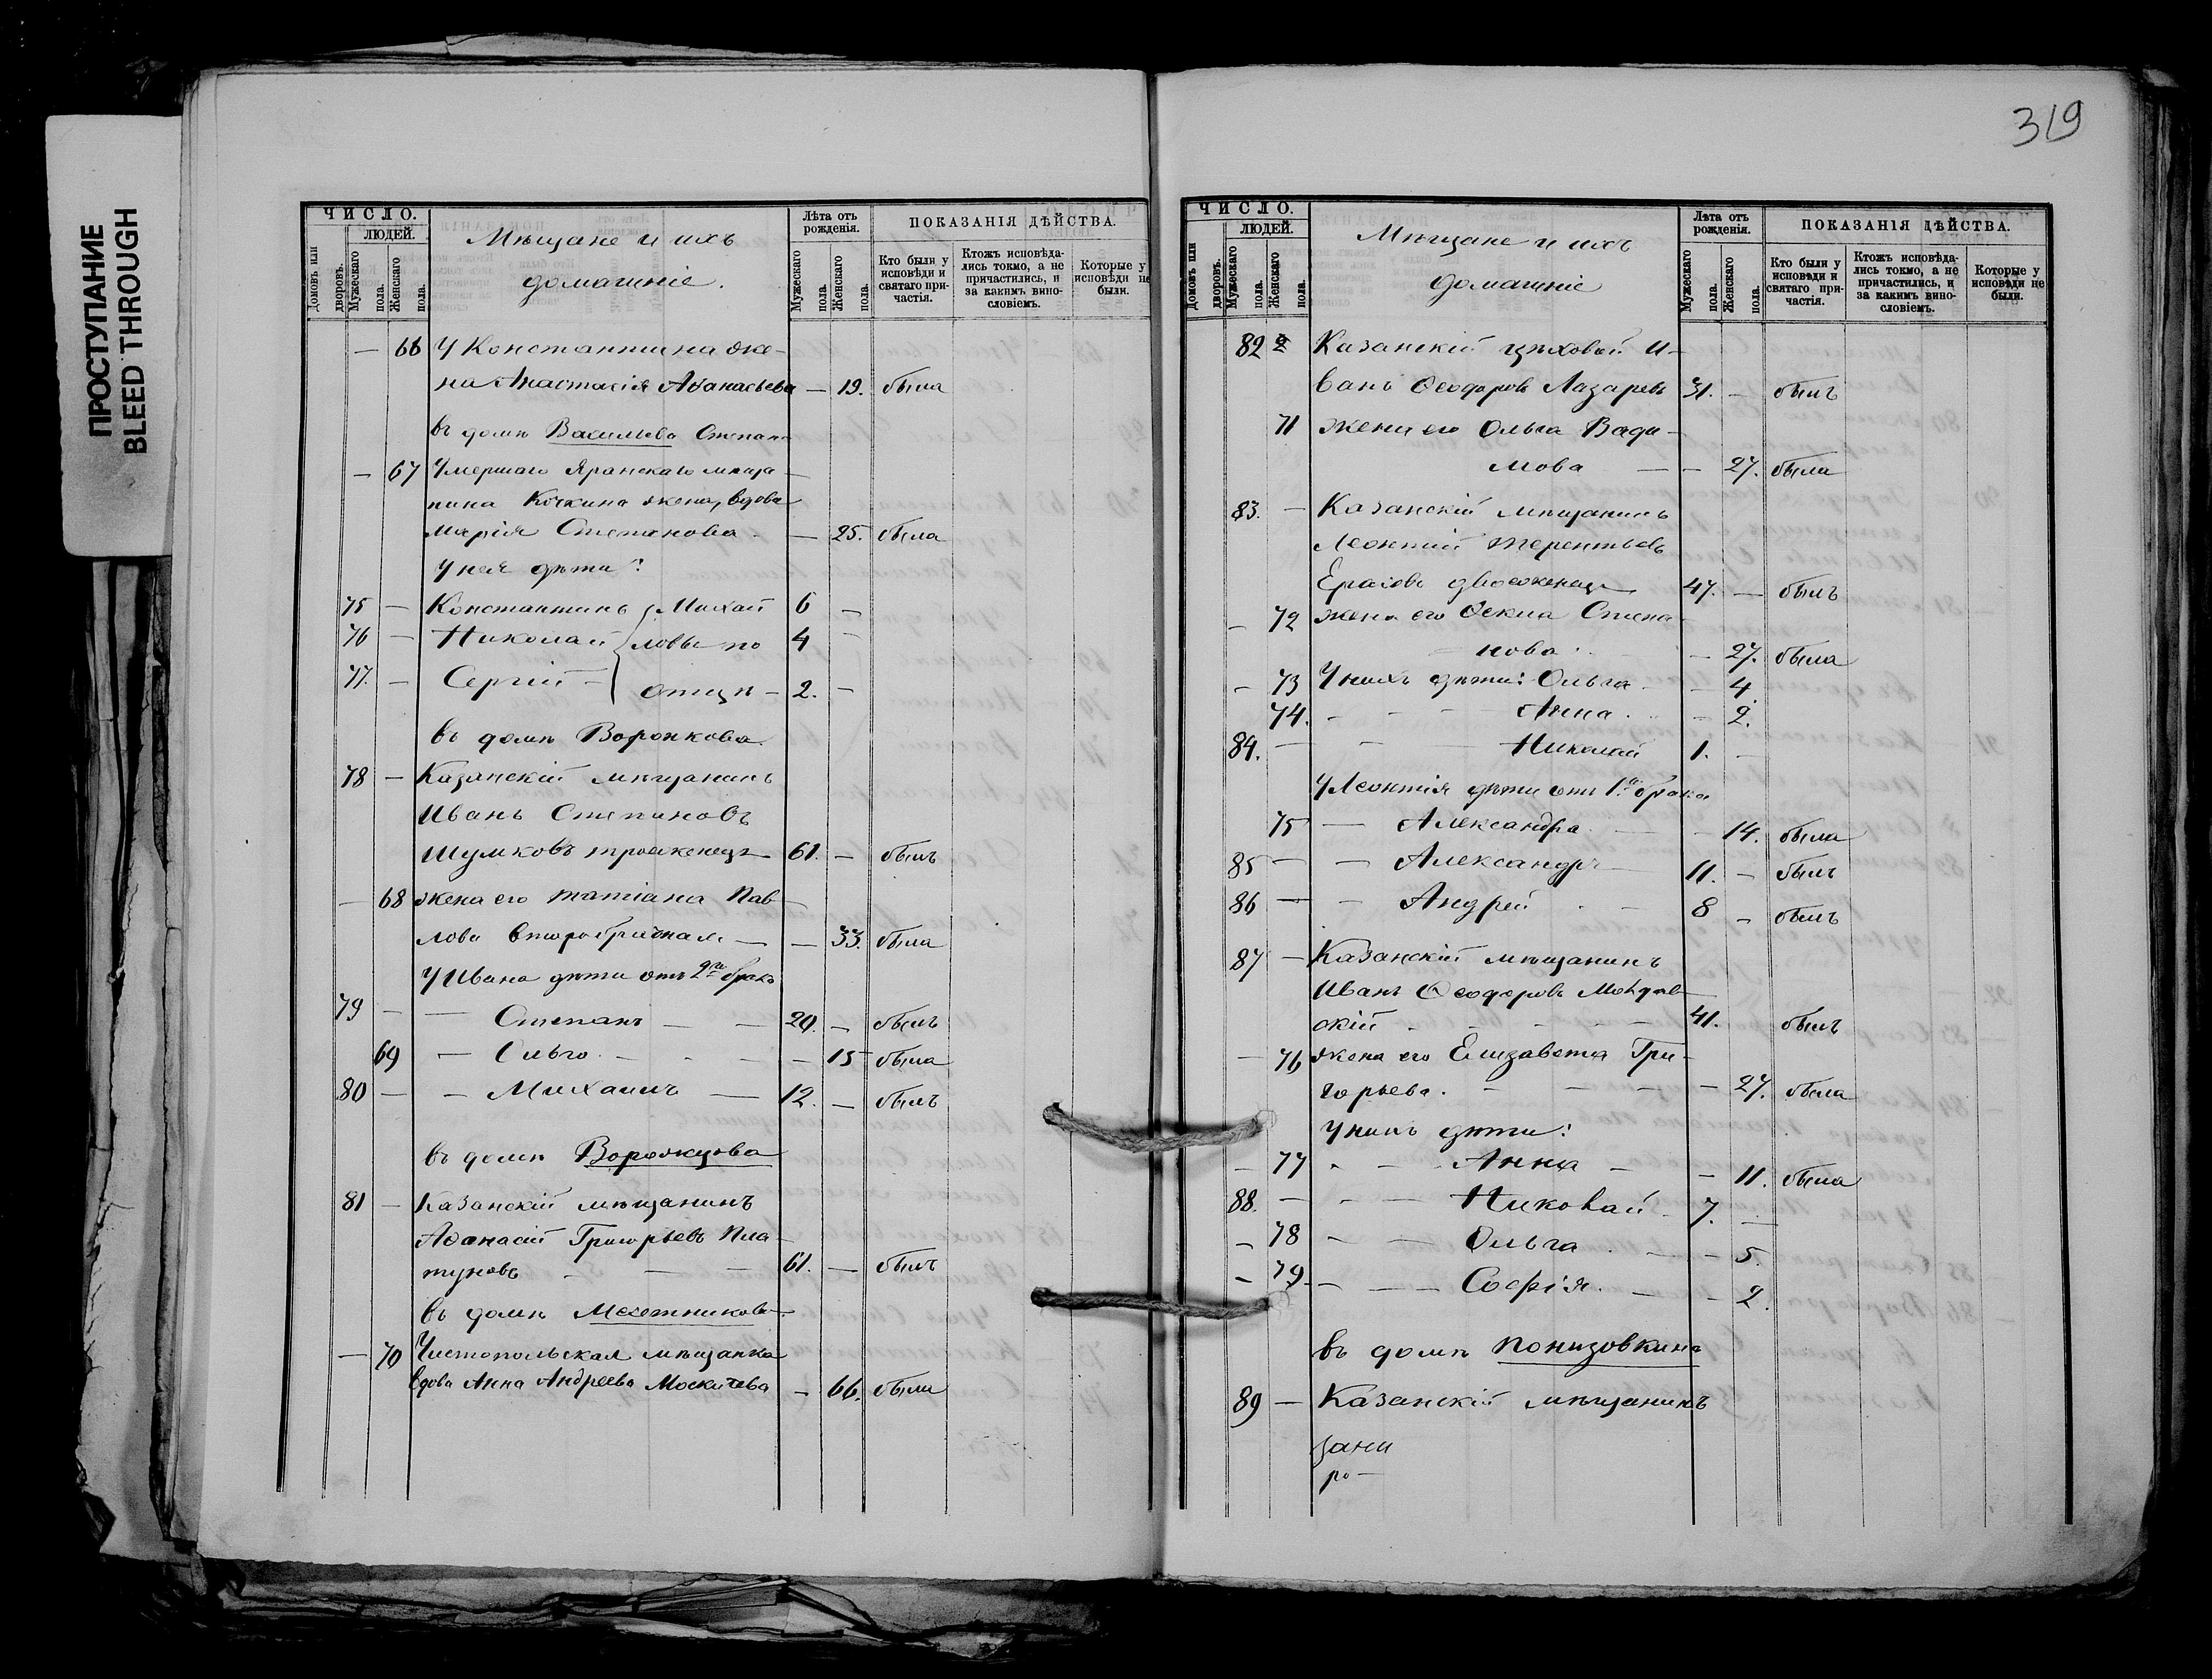 ПРОСТУПАНИЕ
BLEED THROUGH
319
ЧИСЛО.
ЛЮДЕЙ.
Домовъ или дворовъ.
Мужескаго пола.
Женскаго пола.
Мѣщане и ихъ
домашніе.
Лѣта отъ рожденія.
Мужескаго пола.
Женскаго пола.
ПОКАЗАНІЯ ДѢЙСТВА.
Кто были у исповѣди и святаго причастія.
Ктожъ исповѣдались токмо, а не причастились, и за какимъ винословіемъ.
Которые у исповѣди не были.
— 66 У Константина же-
на Анастасія Аѳанасьева — 19. была
въ домѣ Васильева Степан
— 67 Умершаго Яранскаго мѣща-
нина Кочкина жена, вдова
Марія Степанова — 25. была
У нея дѣти:
75 — Константинъ Михай 6 —
76 — Николай ловы по 4 —
77. — Сергій — отцу — 2. —
въ домѣ Воронкова.
78 — Казанскій мѣщанинъ
Иванъ Степановъ
Шумковъ троеженецъ 61. — былъ
— 68 жена его Татіана Пав-
лова второбрачная — — 33. была
У Ивана дѣти отъ 2го брака
79 — — Степанъ — — 20. — былъ
69 — Ольга — — 15 была
80 — — Михаилъ — 12. — былъ
въ домѣ Ворожцова
81 — Казанскій мѣщанинъ
Аѳанасій Григорьевъ Пла-
туновъ — — — 61. — былъ
въ домѣ Мехетникова
— 70 Чистопольская мѣщанка
вдова Анна Андреева Москичева — 66. была
ЧИСЛО.
ЛЮДЕЙ.
Домовъ или дворовъ.
Мужескаго пола.
Женскаго пола.
Мѣщане и ихъ
домашніе
Лѣта отъ рожденія.
Мужескаго пола.
Женскаго пола.
ПОКАЗАНІЯ ДѢЙСТВА.
Кто были у исповѣди и святаго причастія.
Ктожъ исповѣдались токмо, а не причастились, и за какимъ винословіемъ.
Которые у исповѣди не были.
82 Казанскій цѣховой И-
ванъ Ѳеодоровъ Лазаревъ 31. — былъ
71 жена его Ольга Вади-
мова — — 27. была
83. — Казанскій мѣщанинъ
Леонтій Терентьевъ
Ерасовъ двоеженецъ 47. — былъ
— 72 жена его Ѳекла Степа-
нова — 27. была
— 73 У нихъ дѣти: Ольга — 4
74. — — — Анна — 2.
84. — — — Николай 1. —
У Леонтія дѣти отъ 1го брака
75 — Александра — — 14. была
85 — — Александръ — 11. — былъ
86 — — Андрей — 8 — былъ
87 — Казанскій мѣщанинъ
Иванъ Ѳеодоровъ
скій — — — — 41. былъ
— 76 жена его Елизавета Гри-
горьева. — — — — 27. была
У нихъ дѣти:
— 77 — — Анна — — 11. была
88. — — — Николай 7. —
— 78 — — Ольга — — 5.
— 79. — — Софія — — 2.
въ домѣ Понизовкина
89 — Казанскій мѣщанинъ